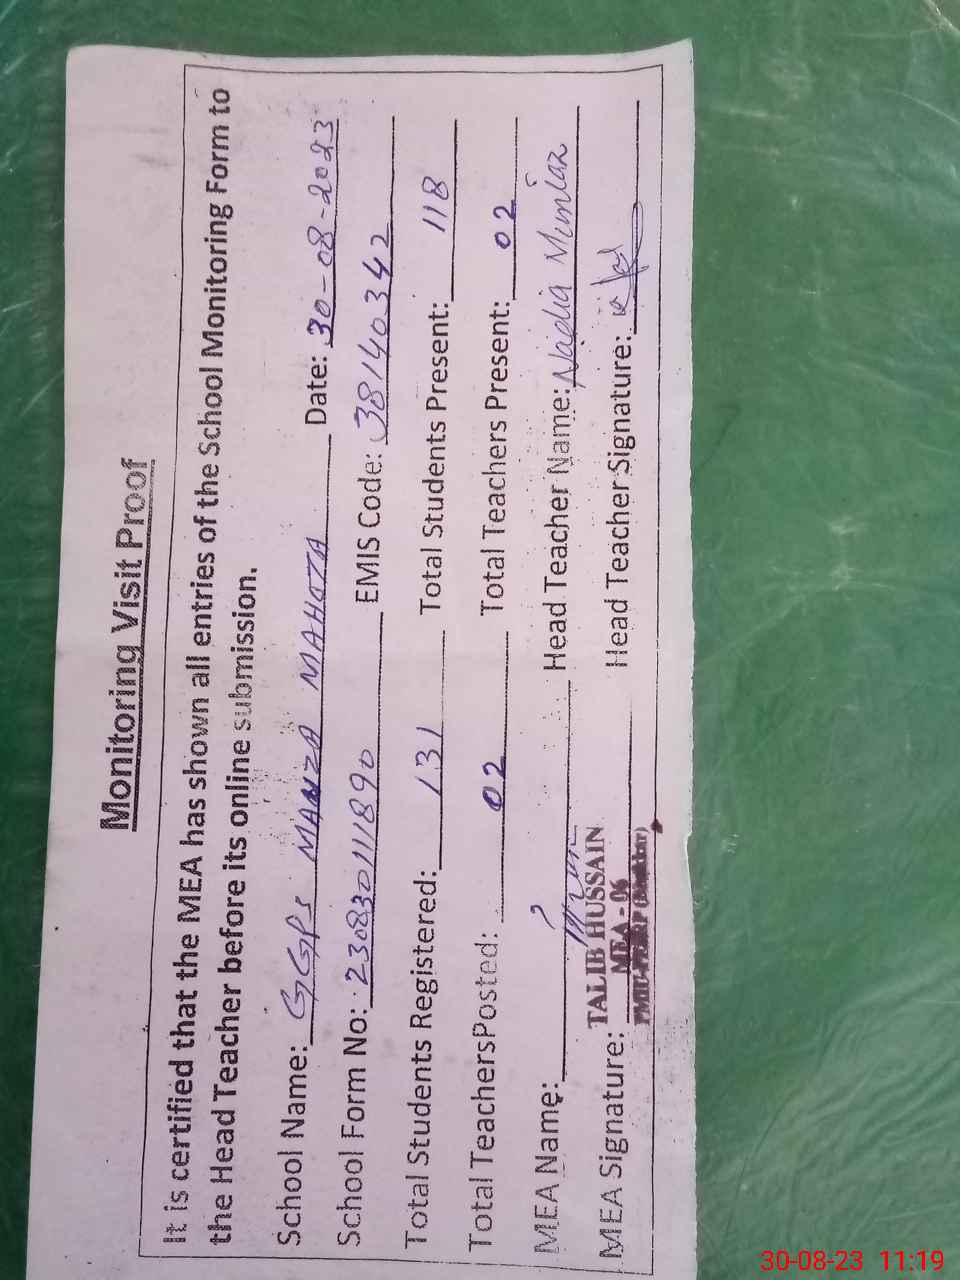 Monitoring Visit Proof
It is certified that the MEA has shown all entries of the School Monitoring Form to
the Head Teacher before its online submission.
School Name: GGPS MANZA MAHOTA Date: 30-08-2023
School Form No: 230830111890 EMIS Code: 38140342
Total Students Registered: 131 Total Students Present: 118
Total TeachersPosted: 02 Total Teachers Present: 02
MEA Name: Head Teacher Name: Nadia Mumtaz
TALIB HUSSAIN
MEA - 06
MEA Signature: Head Teacher Signature:
30-08-23 11:19